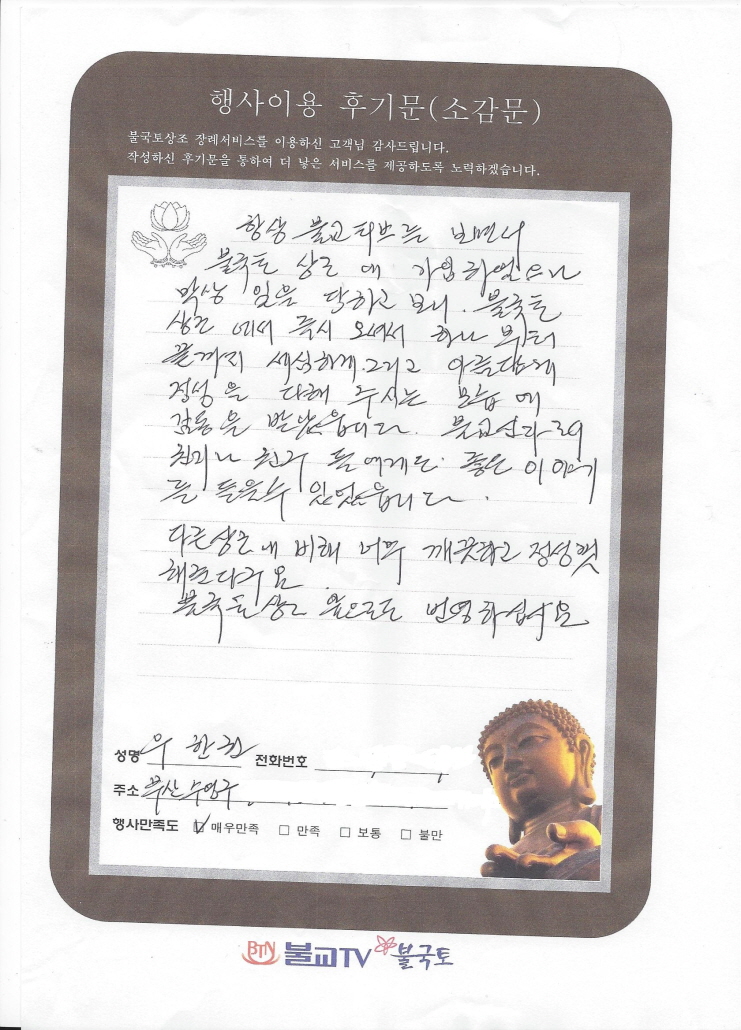 행사이용 후기문(소감문)
불국토상조 장례서비스를 이용하신 고객님 감사드립니다.
작성하신 후기문을 통하여 더 낳은 서비스를 제공하도록 노력하겠습니다.
항상 불교티브를 보면서
불국토 상조에 가입하였으나
막상 일을 당하고 보니. 불국토
상조에서 즉시 오셔서 하나부터
끝까지 세심하게.그리고 아름답게
정성을 다해 주시는 모습에
감동을 받았습니다. 불교신자
친지나 친구들에게도 좋은 이야기
를 들을수 있었습니다.
다른상조에 비해 너무 깨끗하고 정성껏
해준다구요
불국토 상조 앞으로도 번영하십시요
성명 우한권 전화번호
주소 부산 수영구
행사만족도 매우만족 만족 보통 불만
BTN 불교TV 불국토